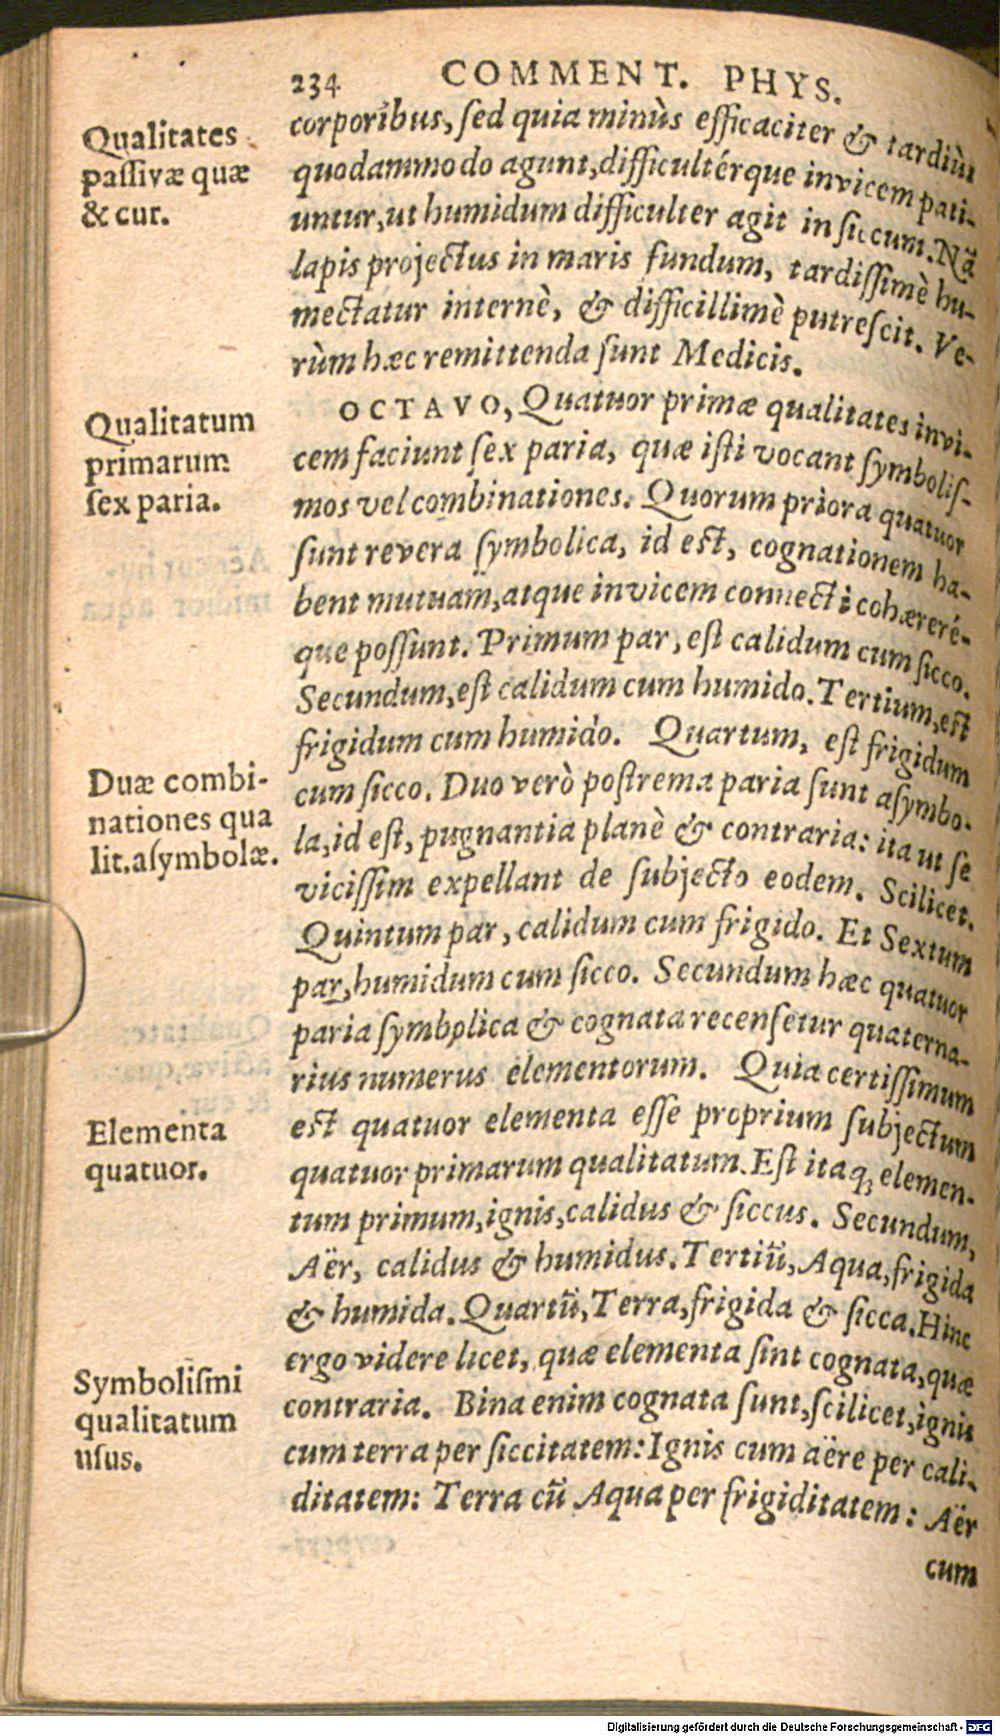 234 COMMENT. PHYS.
Qualitates
passivæ quæ
& cur.
corporibus, sed quia minùs efficaciter & tardiùs
quodammodo agunt, difficultérque invicem pati-
untur, ut humidum difficulter agit in siccum. Nã
lapis projectus in maris fundum, tardissimè hu-
mectatur internè, & difficillimè putrescit. Ve-
rùm hæc remittenda sunt Medicis.
Qualitatum
primarum
sex paria.
OCTAVO, Quatuor primæ qualitates invi-
cem faciunt sex paria, quæ isti vocant symbolis-
mos vel combinationes. Quorum priora quatuor
sunt revera symbolica, id est, cognationem ha-
bent mutuam, atque invicem connecti cohæreré-
que possunt. Primum par, est calidum cum sicco.
Secundum, est calidum cum humido. Tertium, est
frigidum cum humido. Quartum, est frigidum
Duæ combi-
nationes qua
lit. asymbolæ.
cum sicco. Duo verò postrema paria sunt asymbo-
la, id est, pugnantia planè & contraria: ita ut se
vicissim expellant de subjecto eodem. Scilicet.
Quintum par, calidum cum frigido. Et Sextum
par, humidum cum sicco. Secundum hæc quatuor
paria symbolica & cognata recensetur quaterna-
rius numerus elementorum. Quia certissimum
Elementa
quatuor.
est quatuor elementa esse proprium subjectum
quatuor primarum qualitatum. Est itaq; elemen-
tum primum, ignis, calidus & siccus. Secundum,
Aër, calidus & humidus. Tertiũ, Aqua, frigida
& humida. Quartũ, Terra, frigida & sicca. Hinc
ergo videre licet, quæ elementa sint cognata, quæ
Symbolismi
qualitatum
usus.
contraria. Bina enim cognata sunt, scilicet, ignis
cum terra per siccitatem: Ignis cum aëre per cali-
ditatem: Terra cũ Aqua per frigiditatem: Aër
cum
Digitalisierung gefördert durch die Deutsche Forschungsgemeinschaft - DFG